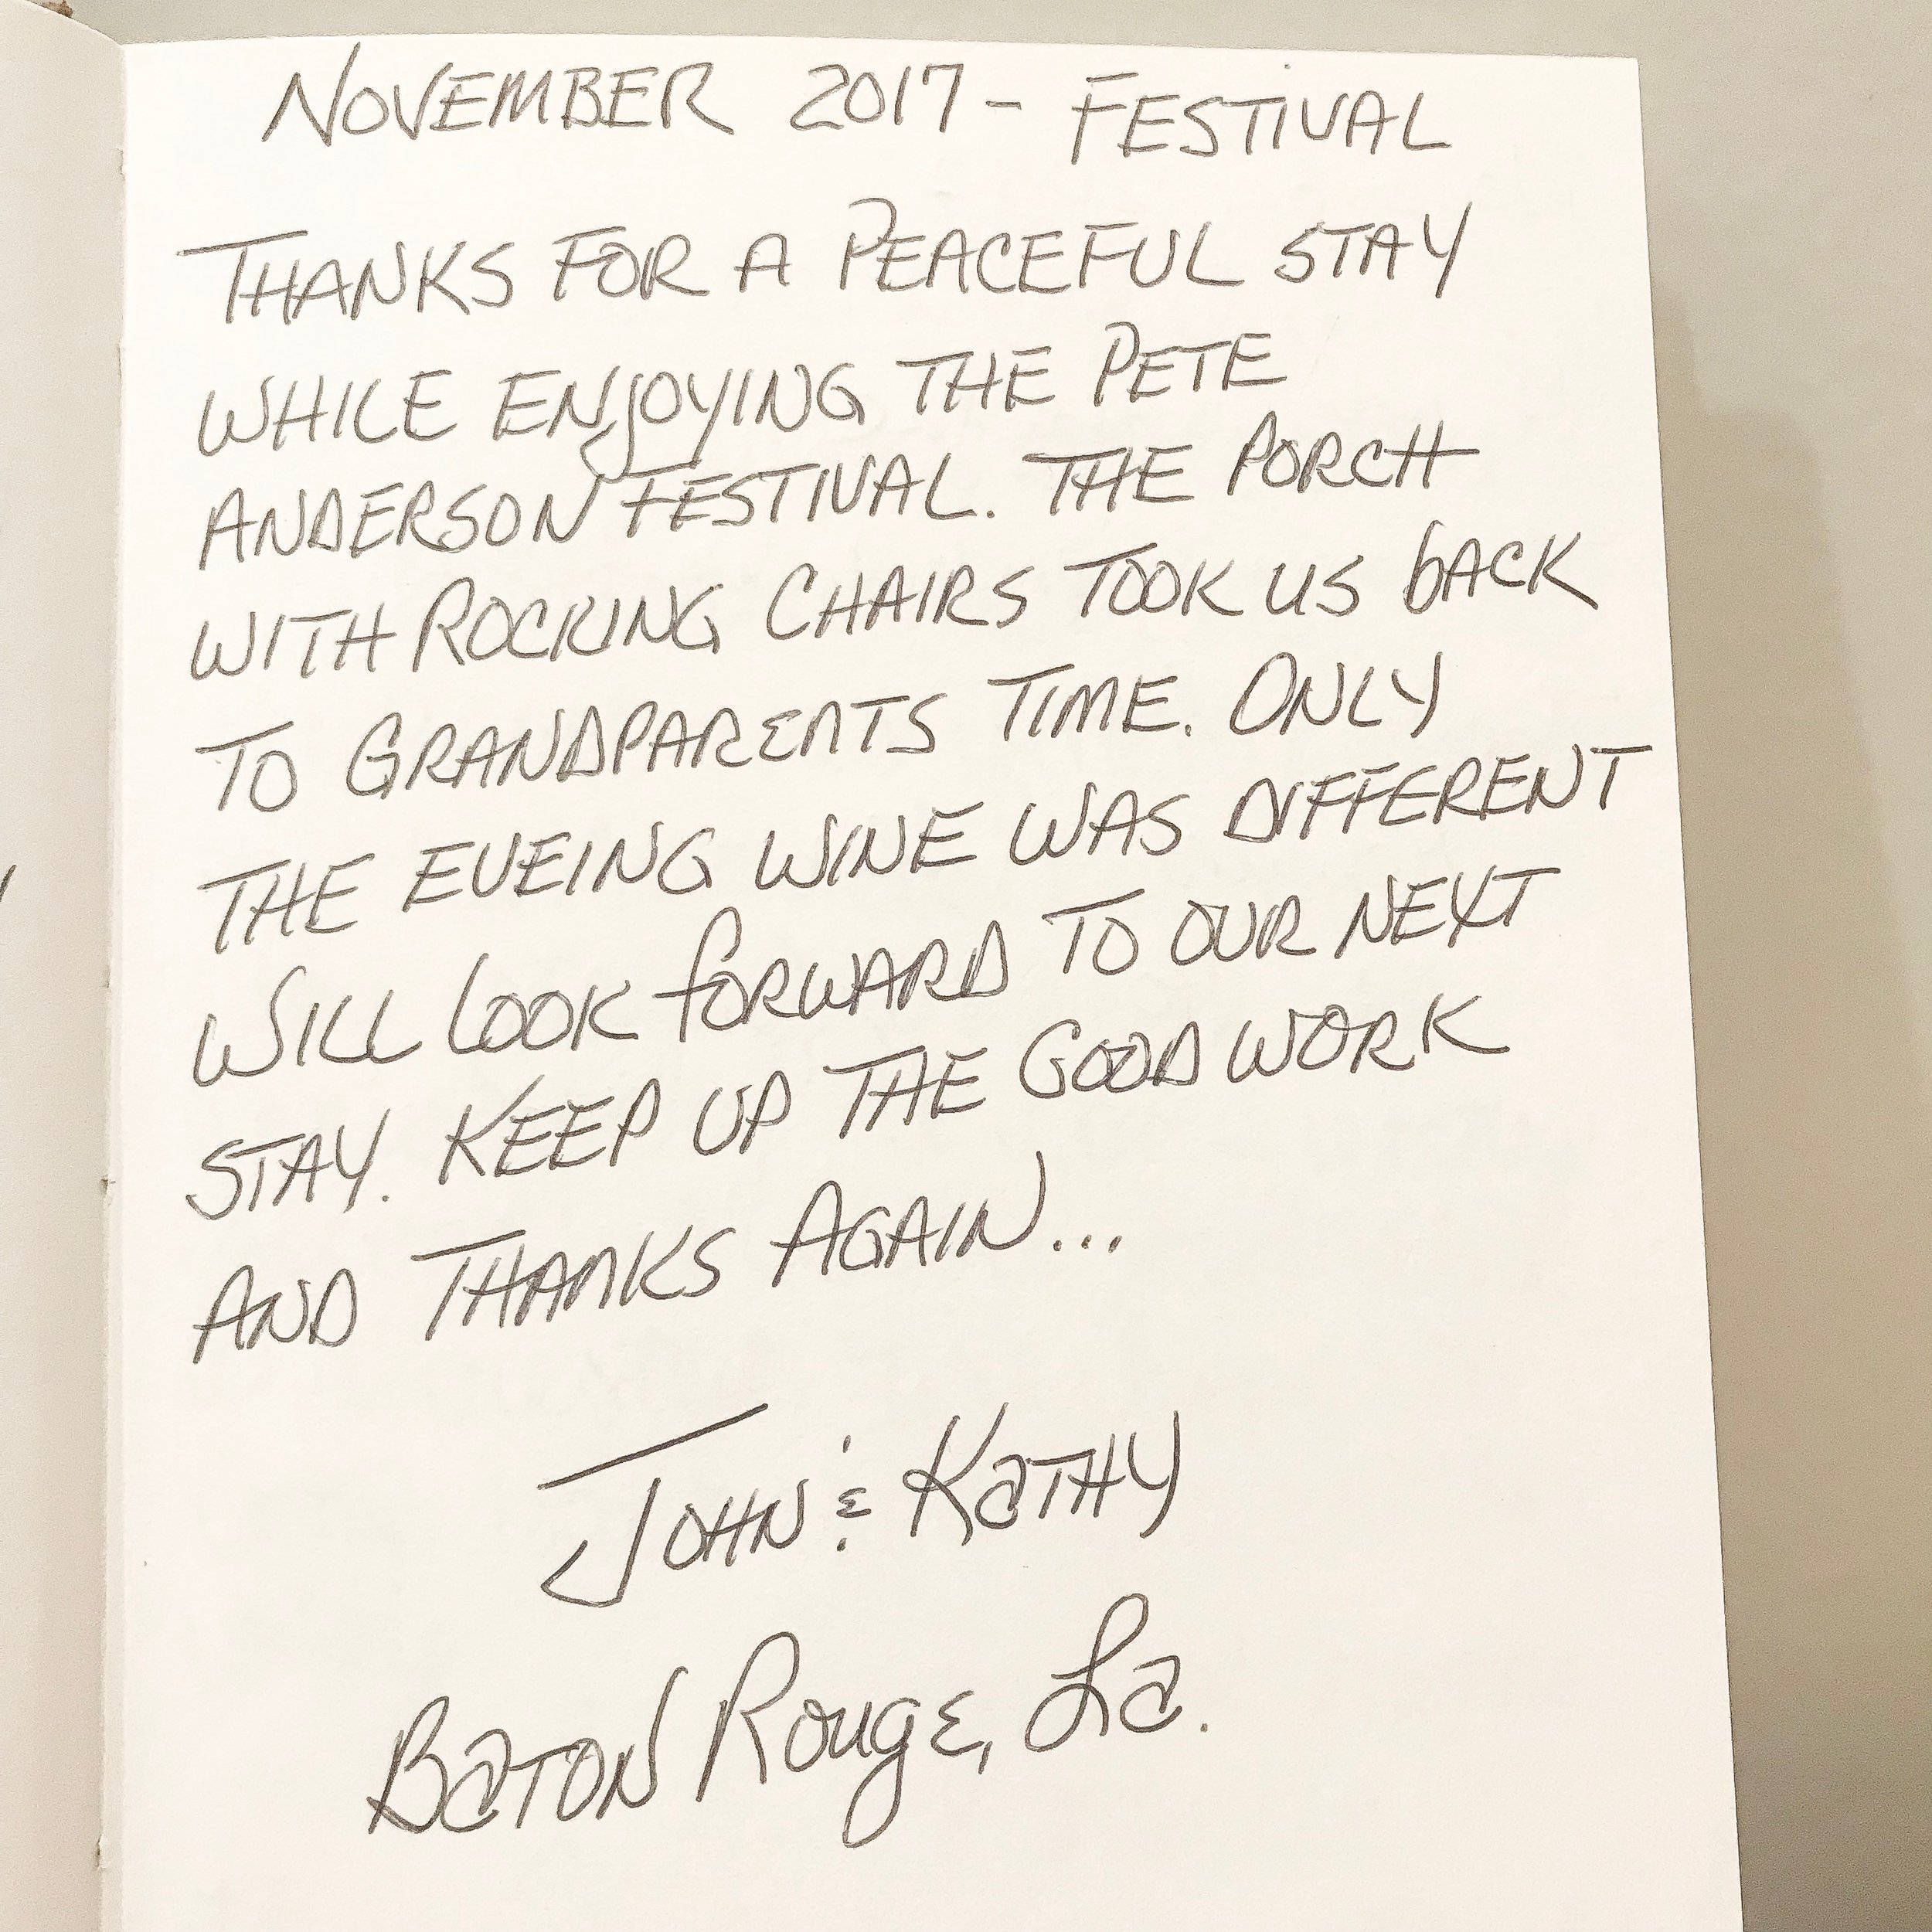 NOVEMBER 2017 - FESTIVAL
THANKS FOR A PEACEFUL STAY
WHILE ENJOYING THE PETE
ANDERSON FESTIVAL. THE PORCH
WITH ROCKING CHAIRS TOOK US BACK
TO GRANDPARENTS TIME. ONLY
THE EVEING WINE WAS DIFFERENT
WILL LOOK FORWARD TO OUR NEXT
STAY. KEEP UP THE GOOD WORK
AND THANKS AGAIN...
JOHN & KATHY
BATON ROUGE, La.